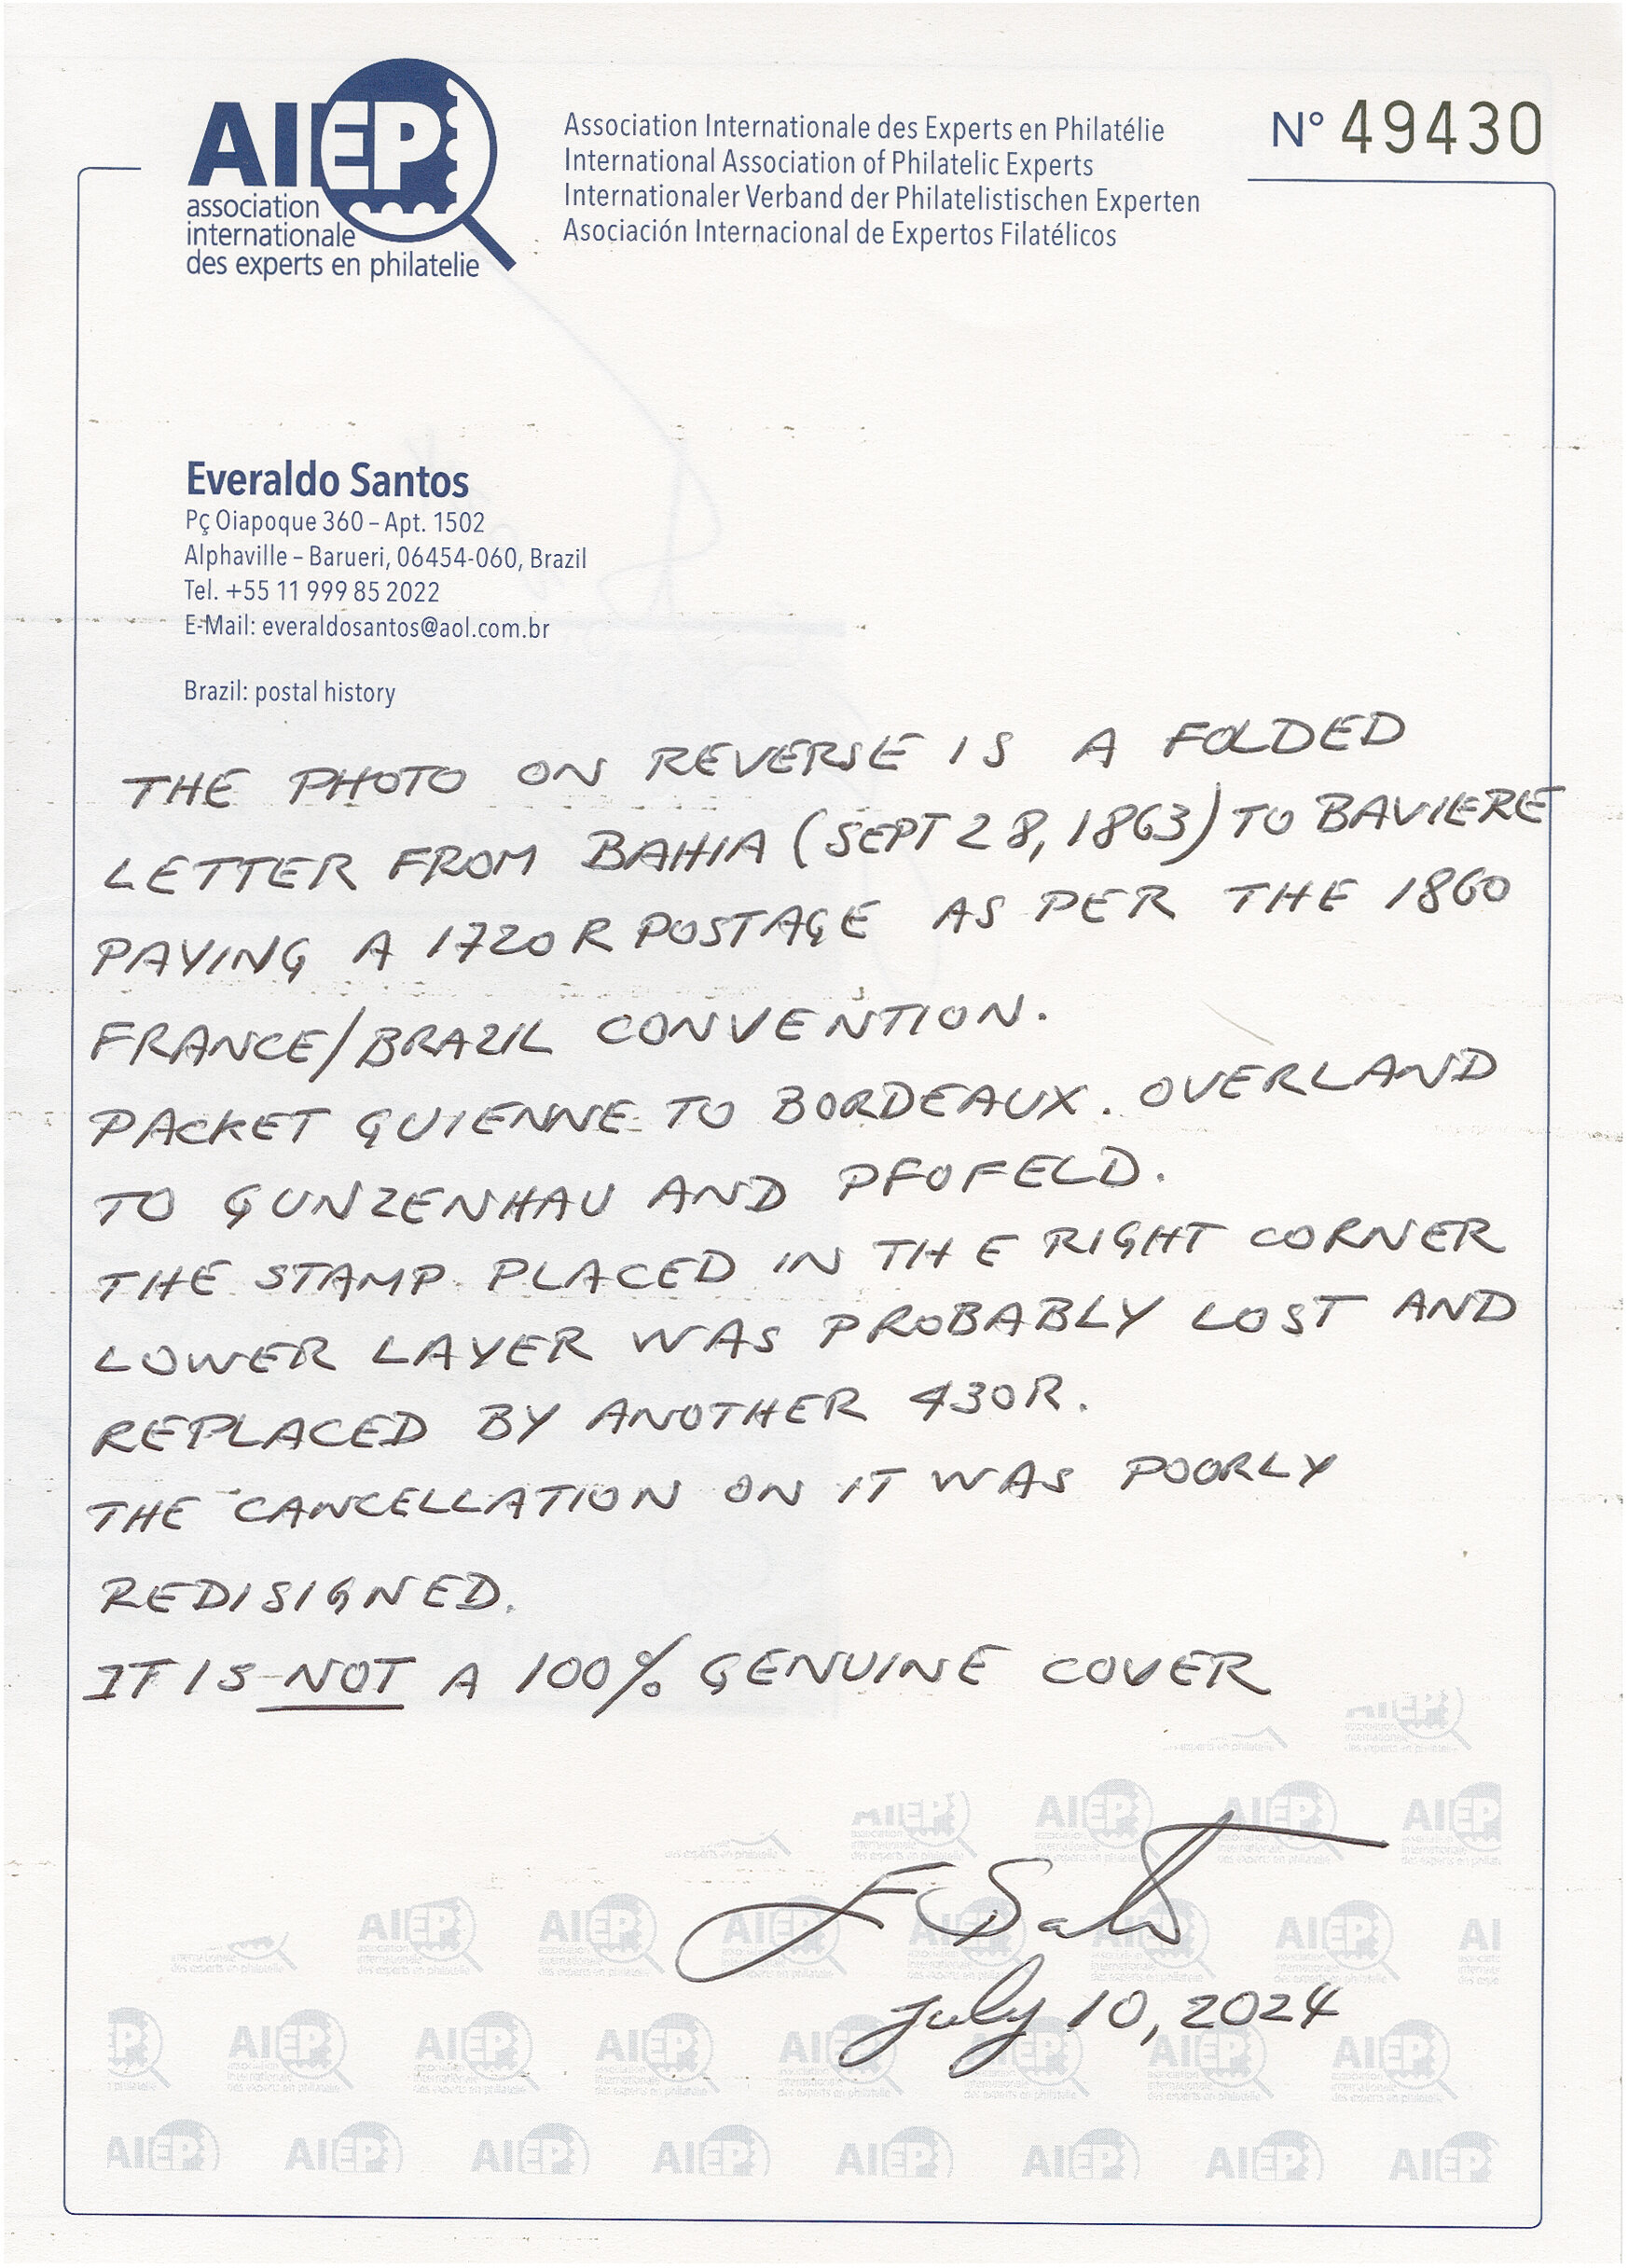 AIEP
association
internationale
des experts en philatelie
Association Internationale des Experts en Philatélie
International Association of Philatelic Experts
Internationaler Verband der Philatelistischen Experten
Asociación Internacional de Expertos Filatélicos
N° 49430
Everaldo Santos
Pç Oiapoque 360 – Apt. 1502
Alphaville – Barueri, 06454-060, Brazil
Tel. +55 11 999 85 2022
E-Mail: everaldosantos@aol.com.br
Brazil: postal history
THE PHOTO ON REVERSE IS A FOLDED
LETTER FROM BAHIA (SEPT 28, 1863) TO BAVIERE
PAYING A 1720 R POSTAGE AS PER THE 1860
FRANCE/BRAZIL CONVENTION.
PACKET GUIENNE TO BORDEAUX. OVERLAND
TO GUNZENHAU AND PFOFELD.
THE STAMP PLACED IN THE RIGHT CORNER
LOWER LAYER WAS PROBABLY LOST AND
REPLACED BY ANOTHER 430R.
THE CANCELLATION ON IT WAS POORLY
REDISIGNED.
IT IS NOT A 100% GENUINE COVER
July 10, 2024